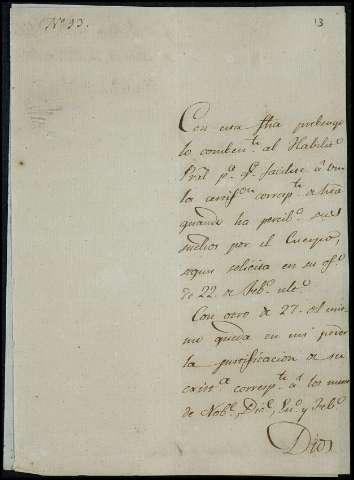 N.º 33.
13
Con esta fha prebengo
lo combente. al Habilit.
Gral p.ª q.e facilite à
la certif.on corresp.te
quando ha percib.º sus
sueldos por el Cuerpo,
segun solicita en su of.º
de 22. de Feb.º ulto.
Con otro de 27. del mis-
mo queda en mi poder
la justificacion de su
exist.ª corresp.te à los meses
de Nob.e, Dic.e, En.º y Feb.º
Dios